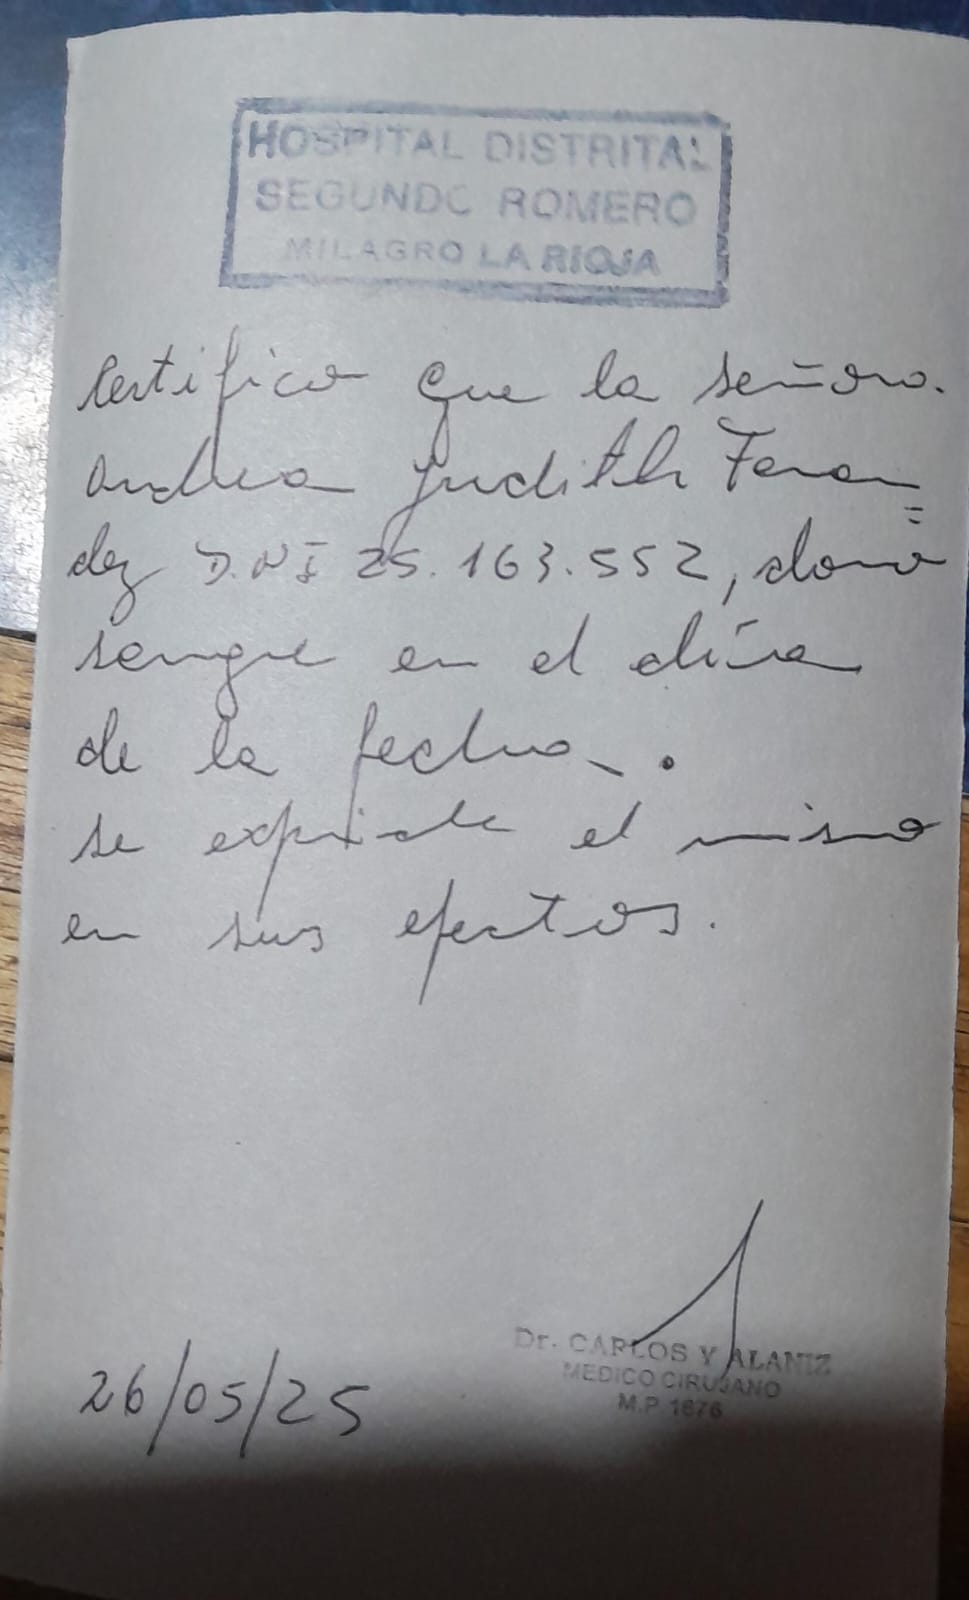 HOSPITAL DISTRITAL
SEGUNDO ROMERO
MILAGRO LA RIOJA
Certifico que la señora.
Andrea Judith Fernan=
dez D.N.I 25.163.552, dono
sangre en el día
de la fecha.
se expide el mismo
en sus efectos.
Dr. CARLOS Y ALANIZ
MEDICO CIRUJANO
M.P. 1676
26/05/25